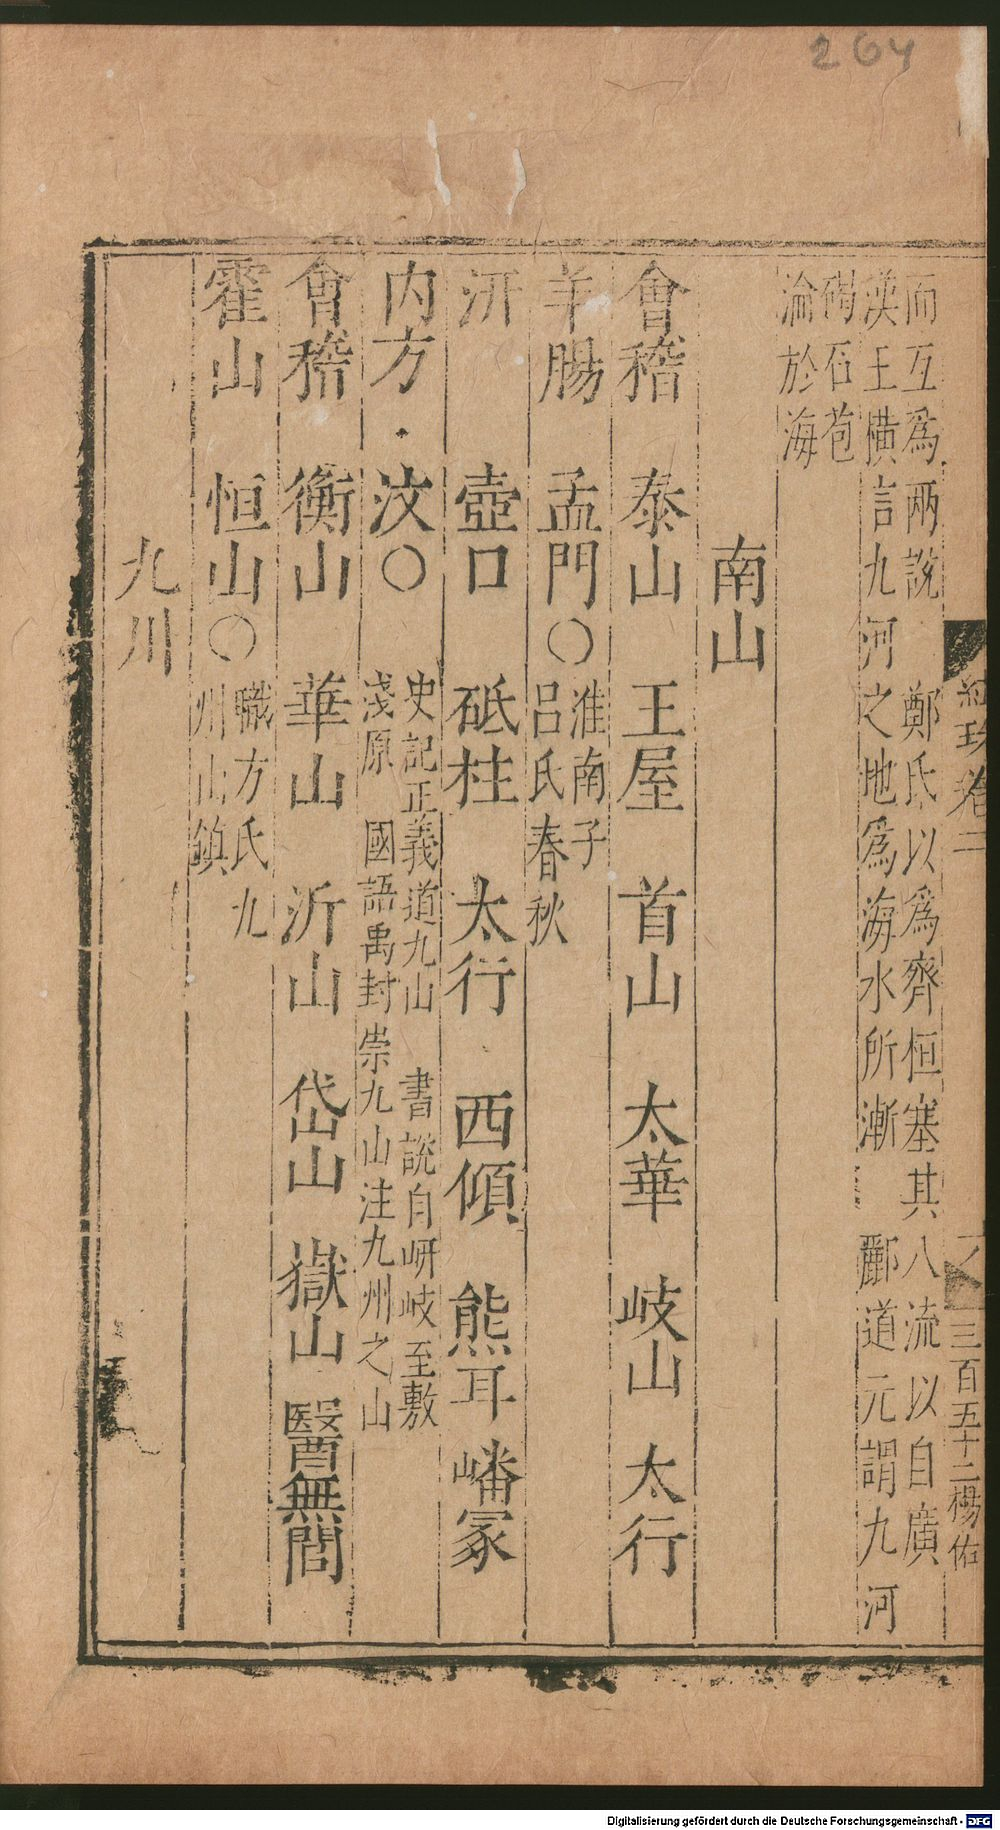 264
而互爲兩說 鄭氏以爲齊桓塞其八流以自廣
漢王橫言九河之地爲海水所漸 酈道元謂九河
碣石苞
淪於海
南山
會稽 泰山 王屋 首山 太華 岐山 太行
羊腸 孟門〇淮南子
呂氏春秋
汧 壺口 砥柱 太行 西傾 熊耳 嶓冢
内方 汶〇史記正義道九山 書說自岍岐至敷
淺原 國語禹封崇九山注九州之山
會稽 衡山 華山 沂山 岱山 嶽山 醫無閭
霍山 恒山〇職方氏九
州山鎮
九川
卷二
三百五十二楊佑
Digitalisierung gefördert durch die Deutsche Forschungsgemeinschaft - DFG